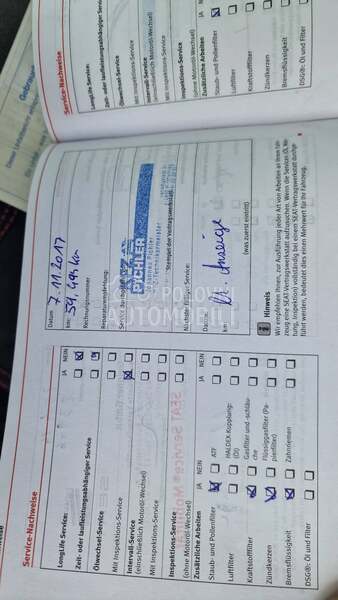 Service-Nachweise
LongLife Service:
JA NEIN
Zeit- oder laufleistungsabhängiger Service
Ölwechsel-Service
Mit Inspektions-Service
Intervall-Service
(einschließlich Motoröl-Wechsel)
Mit Inspektions-Service
Inspektions-Service
(ohne Motoröl-Wechsel)
Zusätzliche Arbeiten
JA NEIN
Staub- und Pollenfilter
Luftfilter
Kraftstofffilter
Zündkerzen
Bremsflüssigkeit
DSG®: Öl und Filter
JA NEIN
ATF
HALDEX-Kupplung:
(Öl)
Gasfilter und -schläu-
che
Flüssiggasfilter (Pa-
pierfilter)
Zahnriemen
Datum 7.11.2017
km: 59.484 km
Rechnungsnummer:
PICHLER
Johannes Pichler
Kfz-Technikermeister
Stempel der Vertragswerkstatt
Nächster fälliger Service:
lt. Anzeige
km:
(was zuerst eintritt)
Hinweis
Wir empfehlen Ihnen, zur Ausführung jeder Art von Arbeiten an Ihrem Fahr-
zeug eine SEAT-Vertragswerkstatt aufzusuchen. Wenn die Services (Öl,
tung, Inspektion) vollständig bei einem SEAT-Vertragswerkstatt durchge-
führt werden, bedeutet dies einen Mehrwert für Ihr Fahrzeug.
Service-Nachweise
LongLife Service:
Zeit- oder laufleistungsabhängiger Service
Ölwechsel-Service
Mit Inspektions-Service
Intervall-Service
(einschließlich Motoröl-Wechsel)
Mit Inspektions-Service
Inspektions-Service
(ohne Motoröl-Wechsel)
Zusätzliche Arbeiten
JA NEIN
Staub- und Pollenfilter
Luftfilter
Kraftstofffilter
Zündkerzen
Bremsflüssigkeit
DSG®: Öl und Filter
POLOVNI
AUTOMOBILI